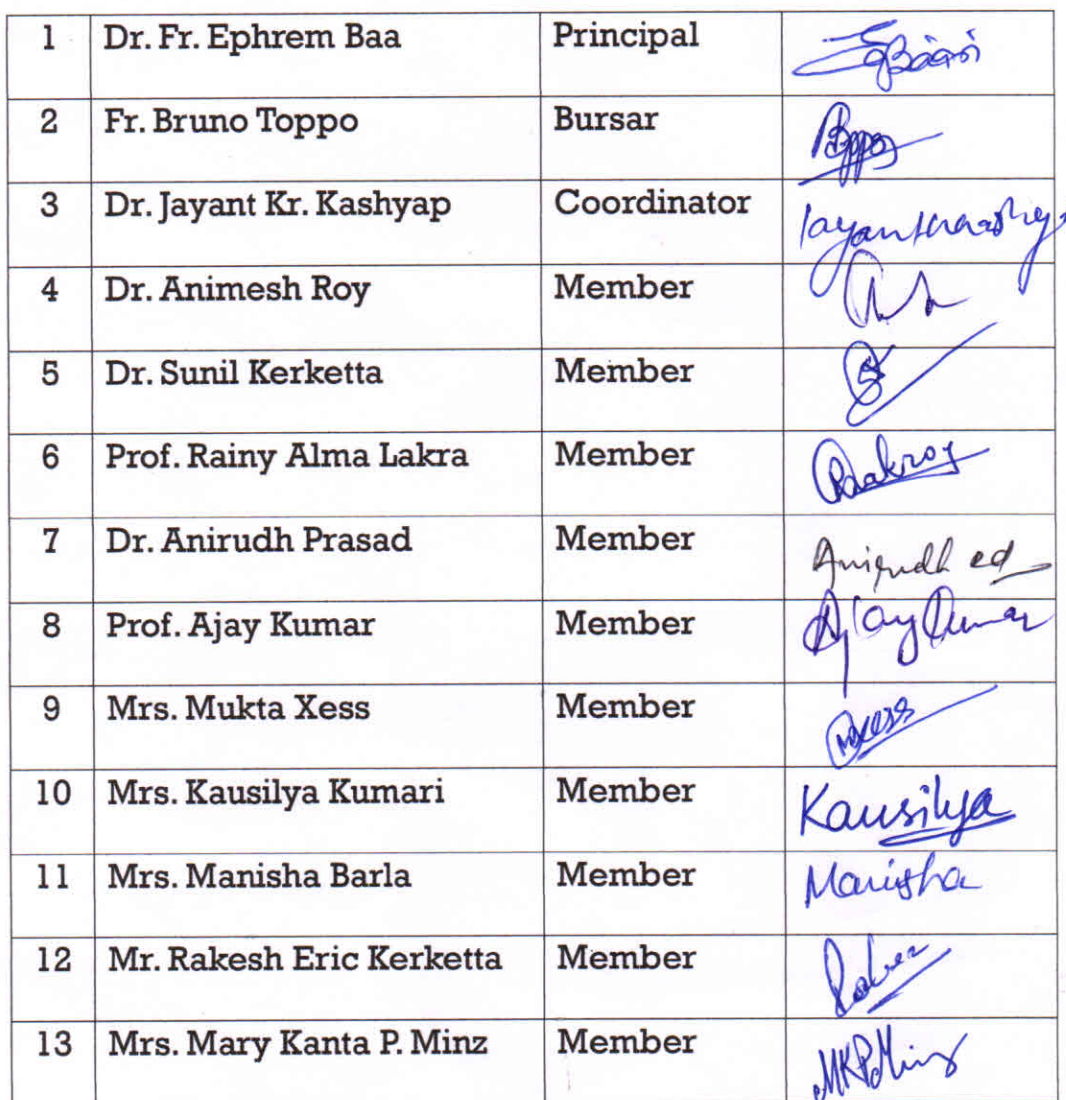 1 Dr. Fr. Ephrem Baa Principal
2 Fr. Bruno Toppo Bursar
3 Dr. Jayant Kr. Kashyap Coordinator
4 Dr. Animesh Roy Member
5 Dr. Sunil Kerketta Member
6 Prof. Rainy Alma Lakra Member
7 Dr. Anirudh Prasad Member Anirudh
8 Prof. Ajay Kumar Member Ajay Kumar
9 Mrs. Mukta Xess Member
10 Mrs. Kausilya Kumari Member Kausilya
11 Mrs. Manisha Barla Member Manisha
12 Mr. Rakesh Eric Kerketta Member
13 Mrs. Mary Kanta P. Minz Member MKPMinz